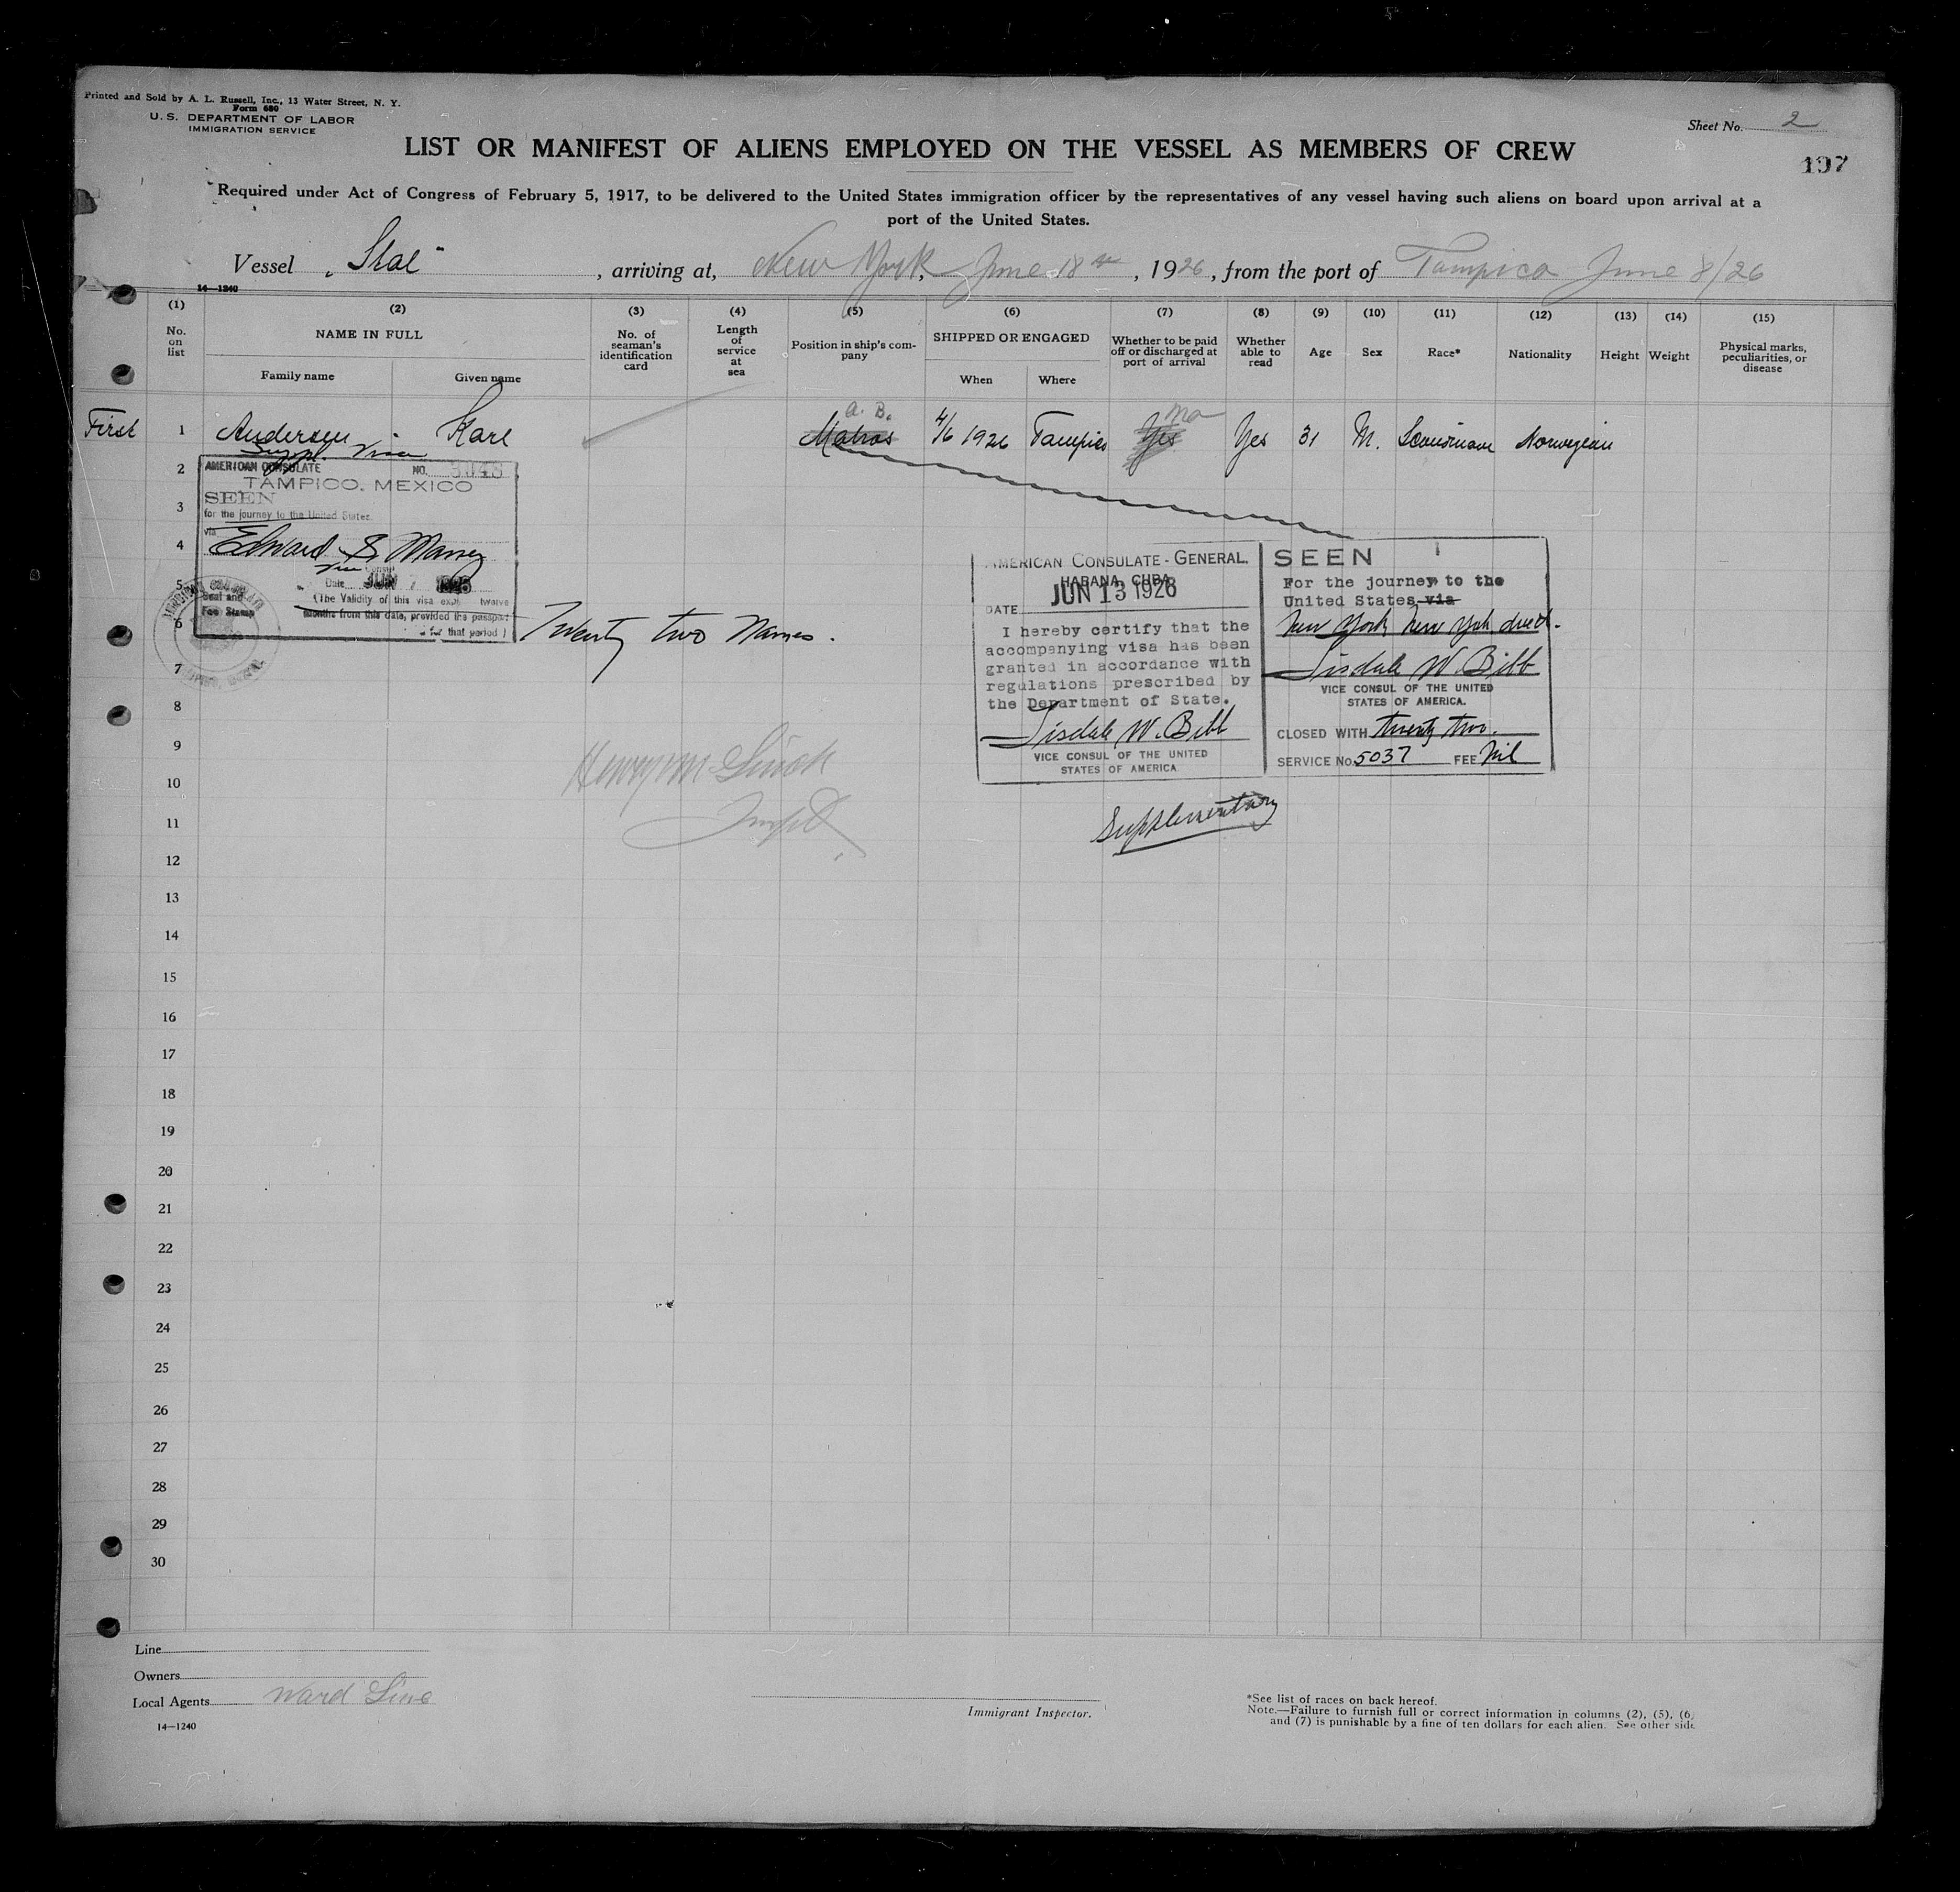 Printed and Sold by A. L. Russell, Inc., 13 Water Street, N. Y.
Form 680
U. S. DEPARTMENT OF LABOR
IMMIGRATION SERVICE
Sheet No. 2
LIST OR MANIFEST OF ALIENS EMPLOYED ON THE VESSEL AS MEMBERS OF CREW
197
Required under Act of Congress of February 5, 1917, to be delivered to the United States immigration officer by the representatives of any vessel having such aliens on board upon arrival at a
port of the United States.
Vessel "Stal", arriving at, New York, June 18th, 1926, from the port of Tampico June 8/26
14—1240
(1) (2) (3) (4) (5) (6) (7) (8) (9) (10) (11) (12) (13) (14) (15)
No. on list
NAME IN FULL
Family name Given name
No. of seaman's identification card
Length of service at sea
Position in ship's company
SHIPPED OR ENGAGED
When Where
Whether to be paid off or discharged at port of arrival
Whether able to read
Age
Sex
Race*
Nationality
Height
Weight
Physical marks, peculiarities, or disease
A. B. No
First 1 Andersen Kare Matros 4/6 1926 Tampico Yes Yes 31 M. Norwegian
Suppl. Visa
2
3
4
5
6
7
8
9
10
11
12
13
14
15
16
17
18
19
20
21
22
23
24
25
26
27
28
29
30
AMERICAN CONSULATE NO.
TAMPICO, MEXICO
SEEN
for the journey to the United States.
via
Edward S. Maney
Vice Consul
Date JUN 7
(The Validity of this visa expires twelve
months from this date, provided the passport
for that period)
Seal and
Fee Stamp
Twenty two Names.
AMERICAN CONSULATE-GENERAL.
HABANA, CUBA
DATE JUN 13 1926
I hereby certify that the
accompanying visa has been
granted in accordance with
regulations prescribed by
the Department of State.
Tisdale W. Bibb
VICE CONSUL OF THE UNITED
STATES OF AMERICA
SEEN
For the journey to the
United States via
New York New York direct.
Tisdale W. Bibb
VICE CONSUL OF THE UNITED
STATES OF AMERICA.
CLOSED WITH twenty two.
SERVICE No. 5037 FEE Nil
Supplementary
Line
Owners
Local Agents Ward Line
14—1240
Immigrant Inspector.
*See list of races on back hereof.
Note.—Failure to furnish full or correct information in columns (2), (5), (6)
and (7) is punishable by a fine of ten dollars for each alien. See other side